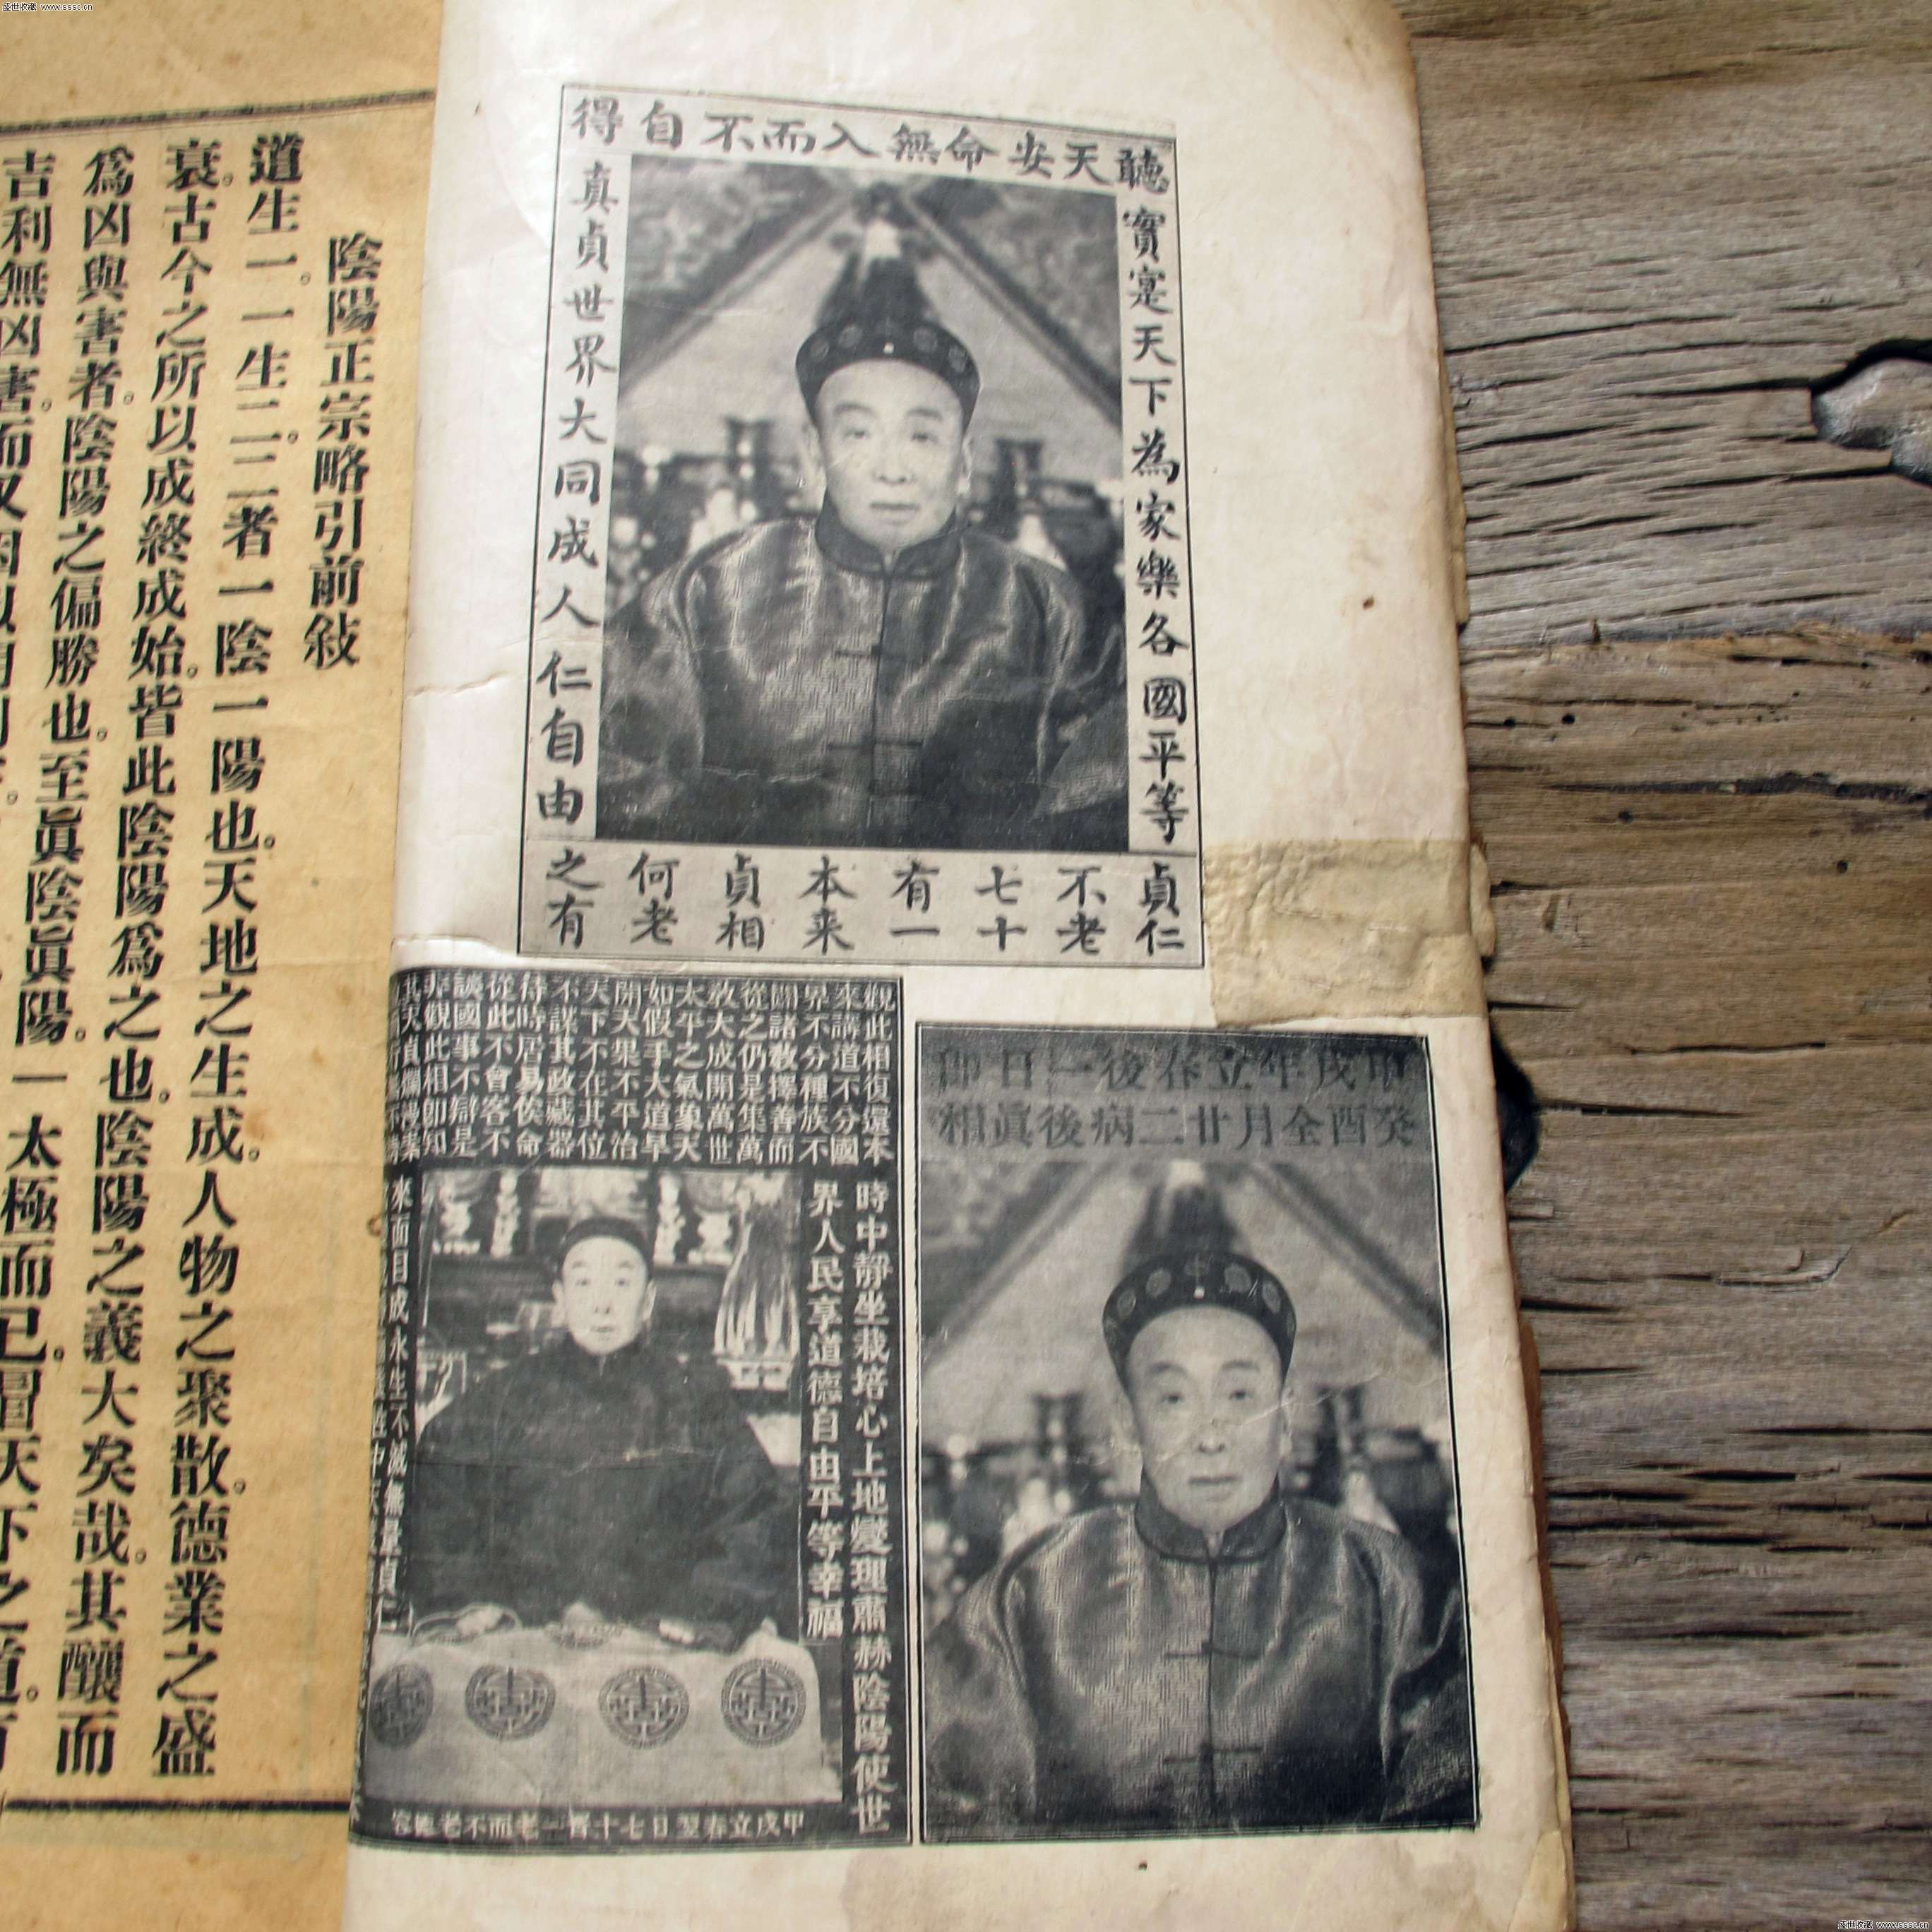 盛世收藏 www.sssc.cn
聽天安命無入而不自得
實寔天下為家樂各國平等
真貞世界大同成人仁自由
貞仁
不老
七十
有一
本来
貞相
何老
之有
觀此相復還本
來講道不分國
界不分種族不
闢諸教擇善而
從之仍是集萬
教大成開萬世
太平之氣象天
如假手大道早
開天果不平治
天下不在其位
不謀其政藏器
待時居易俟命
從此不會客不
談國事不辯是
非觀此相卽知
時中靜坐栽培心上地燮理肅赫陰陽使世
界人民享道德自由平等幸福
來面目成永生不滅無量貞仁
甲戌立春翌日七十晋一老而不老
甲戌年立春後一日卽
癸酉全月廿二病後眞相
陰陽正宗略引前敍
道生一。一生二。二者一陰一陽也。天地之生成。人物之聚散。德業之盛
衰。古今之所以成終成始。皆此陰陽爲之也。陰陽之義大矣哉。其釀而
爲凶與害者。陰陽之偏勝也。至眞陰眞陽。一太極而已。冒天下之道。
吉利無凶害。而又
盛世收藏 www.sssc.cn